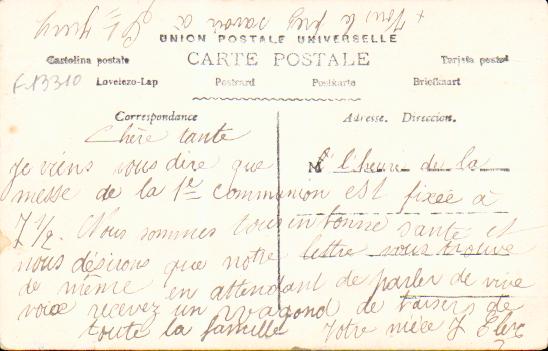 + Vous le fus savoir à
UNION POSTALE UNIVERSELLE
CARTE POSTALE
Cartolina postale
Tarjeta postal
Levelezo-Lap
Postcard
Postkarte
Briefkaart
F-13310
Correspondance
Adresse. Direccion.
Chère tante
je viens vous dire que M l'heure de la
messe de la 1re communion est fixée à
7 1/2. Nous sommes tous en bonne santé et
nous désirons que notre lettre vous trouve
de même en attendant de parler de vive
voix recevez un wagond de baisers de
toute la famille Votre nièce Y